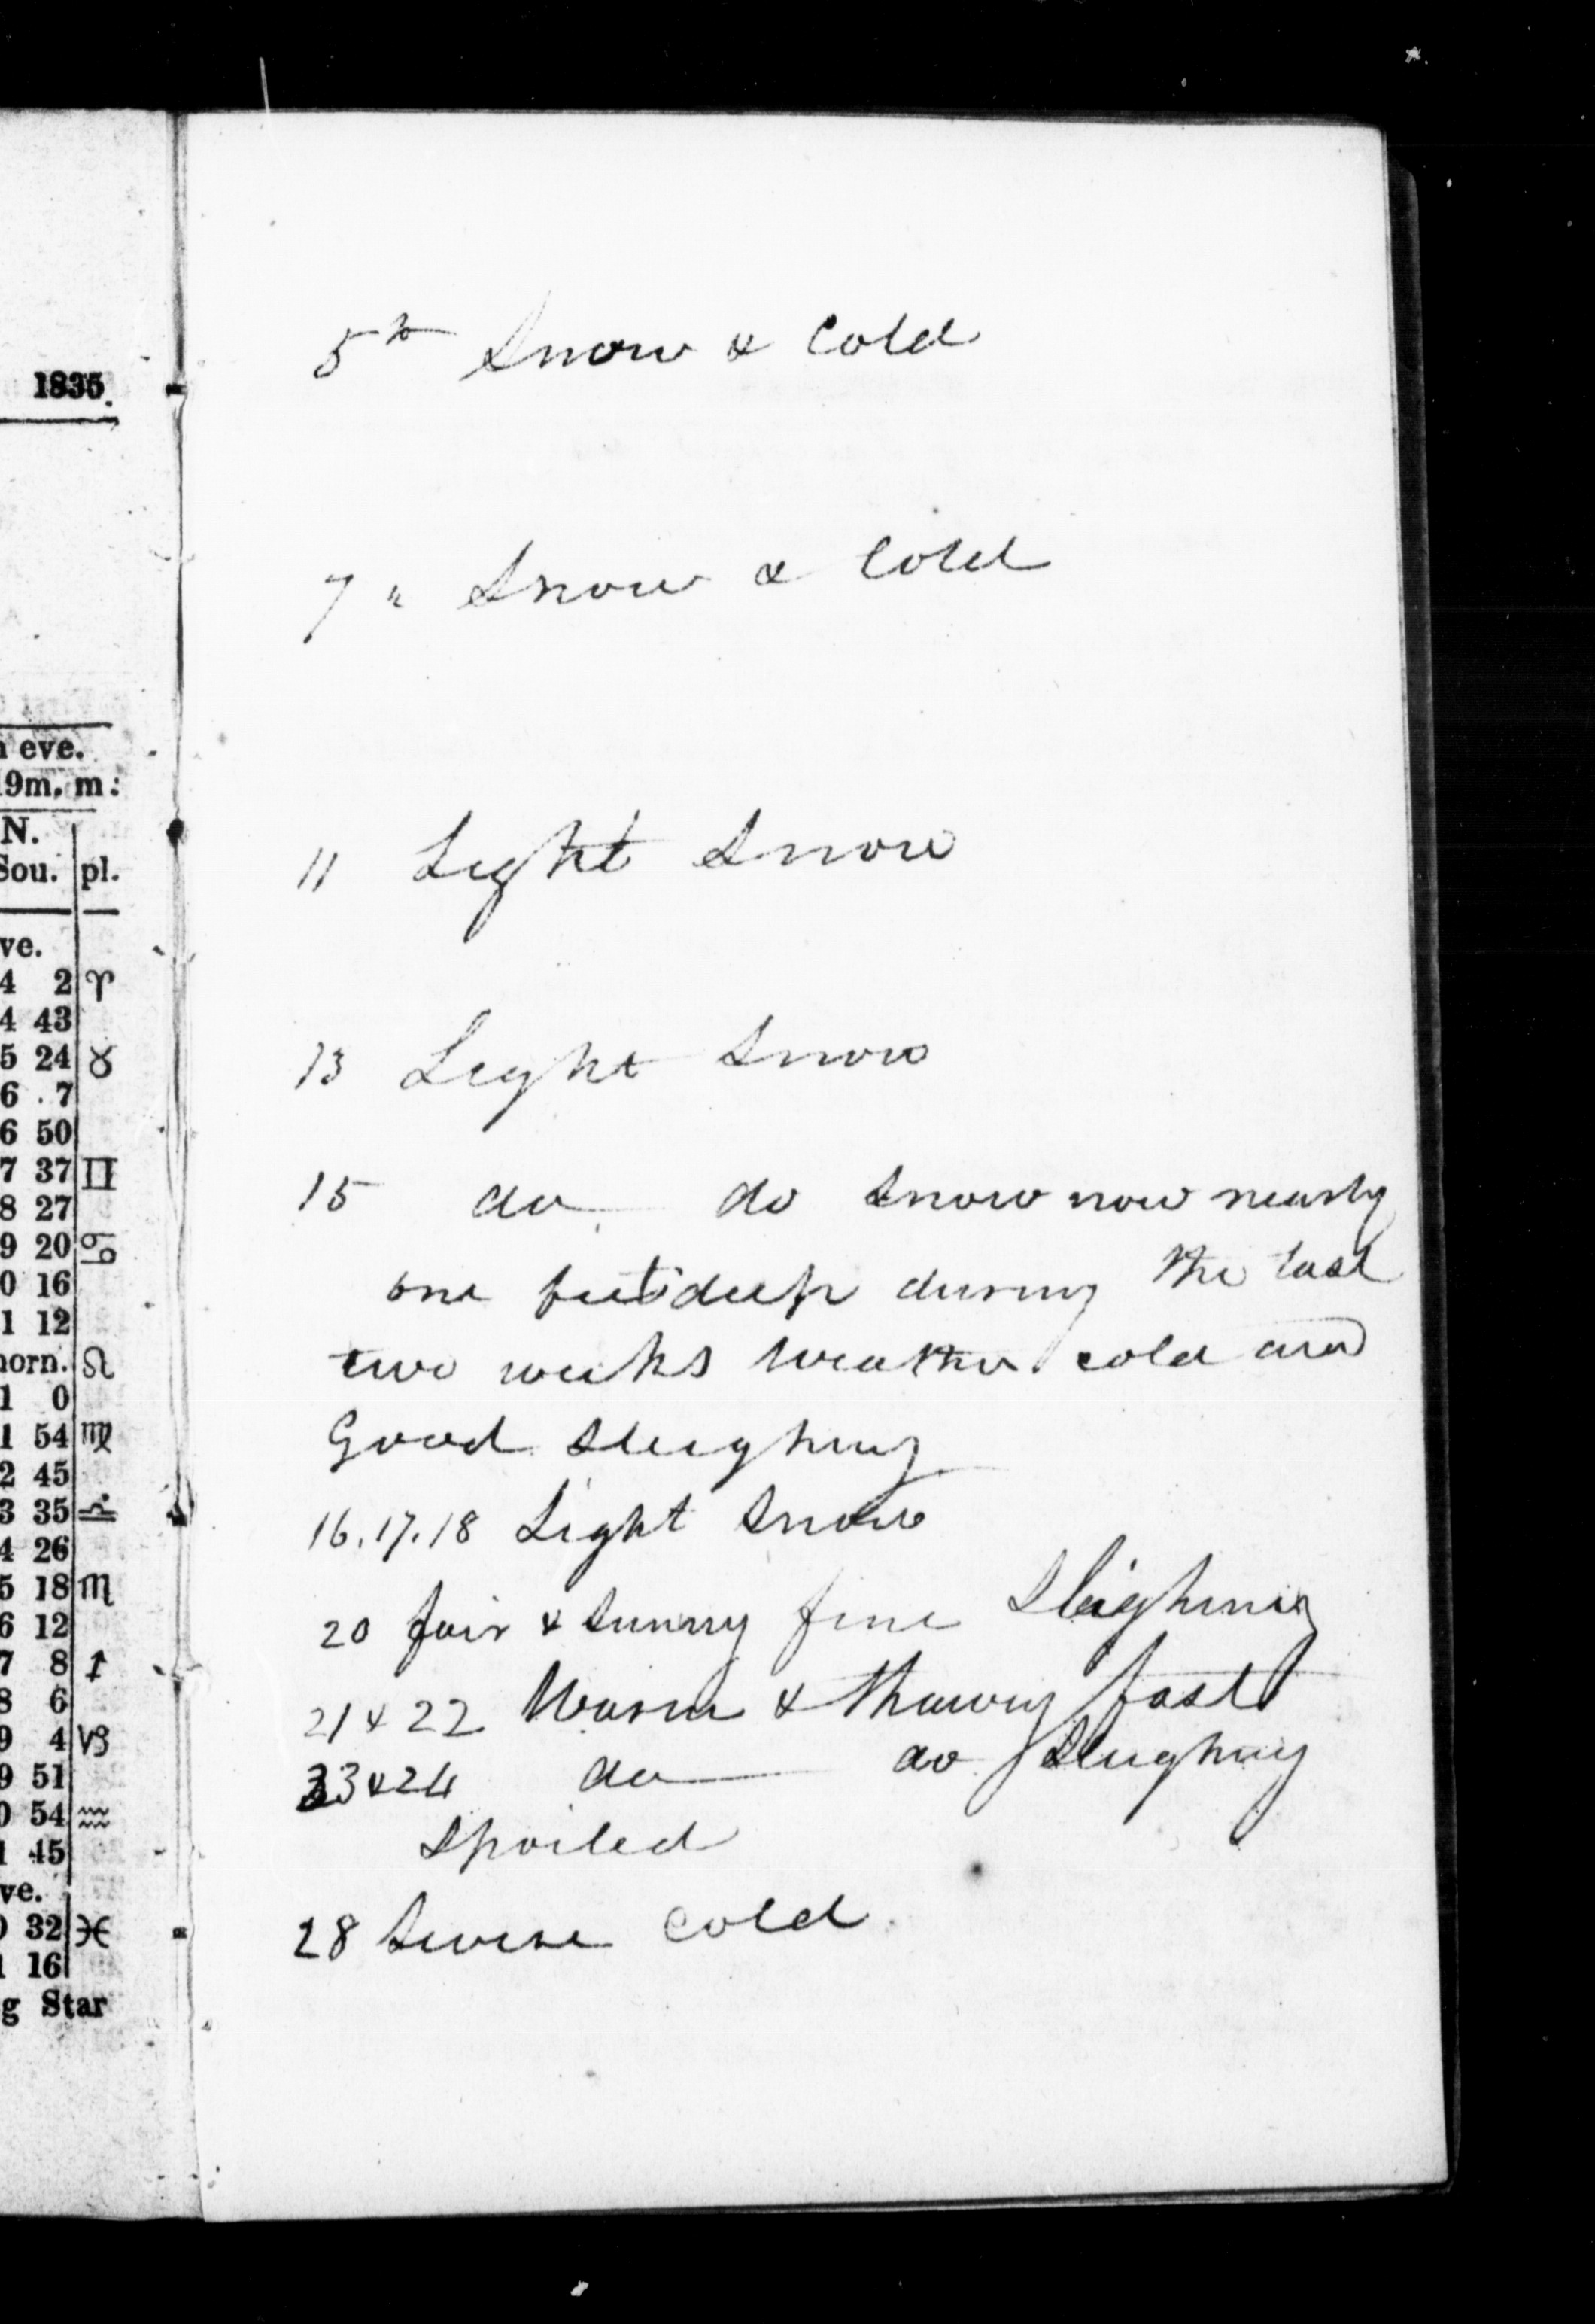 1835.
eve.
9m, m:
N.
Sou. pl.
ve.
4 2 ♈
4 43
5 24 ♉
6 7
6 50
7 37 ♊
8 27
9 20 ♋
0 16
1 12
orn. ♌
1 0
1 54 ♍
2 45
3 35 ♎
4 26
5 18 ♏
6 12
7 8 ♐
8 6
9 4 ♑
9 51
0 54 ♒
1 45
ve.
0 32 ♓
1 16
g Star
5th Snow & Cold
7 " Snow & Cold
11 Light Snow
13 Light Snow
15 do do Snow now nearly
one feet deep during the last
two weeks Weather cold and
Good Sleighing
16.17.18 Light Snow
20 fair & Sunny fine Sleighing
21 & 22 Warm & thawing fast
23 & 24 do do Sleighing
Spoiled
28 Severe Cold